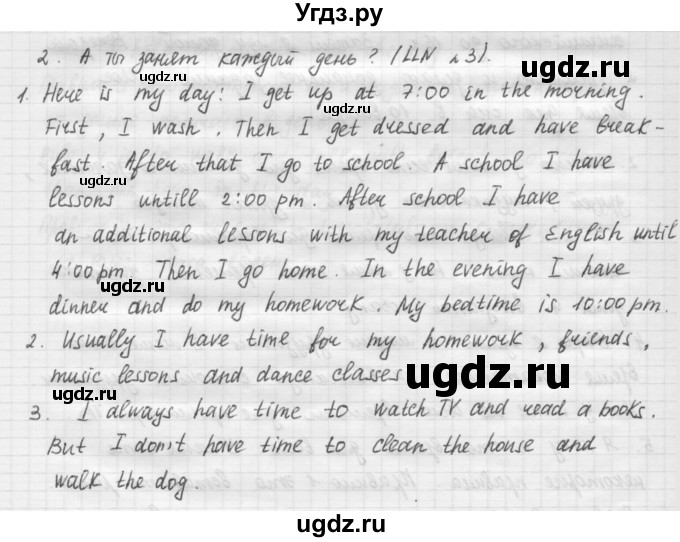 Угдз.ру
2. А ты занят каждый день? (LLN з3).
1. Here is my day: I get up at 7:00 in the morning.
First, I wash. Then I get dressed and have break-
fast. After that I go to school. A school I have
lessons untill 2:00 pm. After school I have
an additional lessons with my teacher of English until
4:00 pm. Then I go home. In the evening I have
dinner and do my homework. My bedtime is 10:00 pm.
2. Usually I have time for my homework, friends,
music lessons and dance classes
3. I always have time to watch TV and read a books.
But I don't have time to clean the house and
walk the dog.
ugdz.ru
ugdz.ru
ugdz.ru
ugdz.ru
ugdz.ru
ugdz.ru
ugdz.ru
ugdz.ru